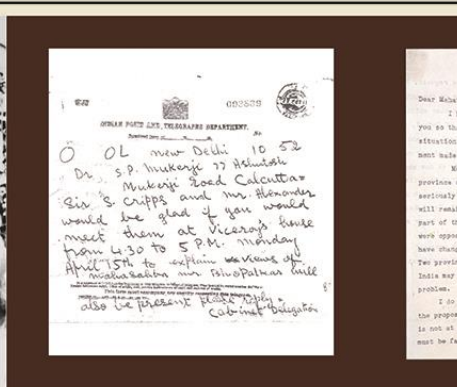 093539
INDIAN POSTS AND TELEGRAPHS DEPARTMENT.
O OL New Delhi 10 52
Dr. S.P. Mukerji 77 Ashutosh
Mukerji Road Calcutta =
Sir S. Cripps and Mr. Alexander
would be glad if you would
meet them at Viceroy's house
from 4-30 to 5 P.M. Monday
April 15th to explain views of
mahasabha Mr. Bhopatkar will
also be present please reply =
Cabinet Delegation
Dear Maha
you so th
situation
ment made
province
seriously
will remai
part of th
were oppos
have chang
Two provi
India may
problem.
I do
the propos
is not at
must be fa